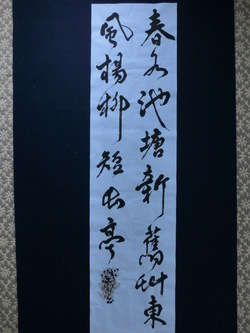 春水池塘新舊艸東
風楊柳短長亭